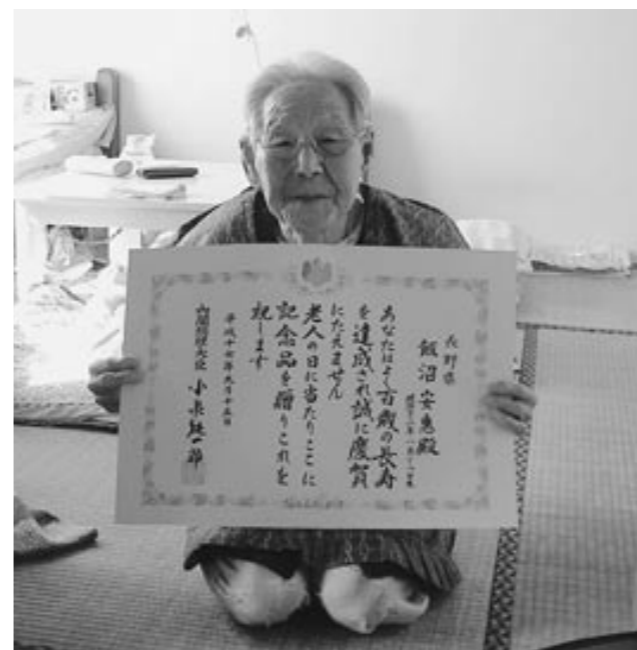 長野県
飯沼安恵殿
あなたはよく百歳の長寿
を達成され誠に慶賀
にたえません
老人の日に当たりここに
記念品を贈りこれを
祝します
平成十七年九月十五日
内閣総理大臣 小泉純一郎